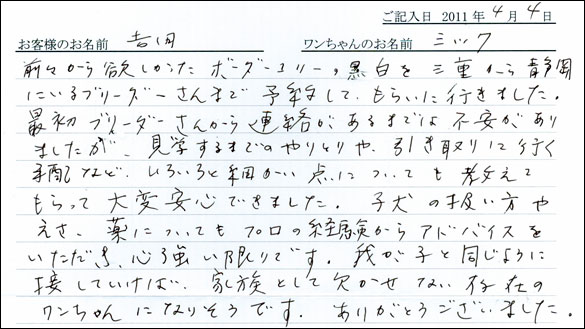 ご記入日 2011年4月4日
お客様のお名前 吉田 ワンちゃんのお名前 ミック
前々から欲しかった ボーダーコリーの黒白を 三重から静岡
にいるブリーダーさんまで 予約して、もらいに行きました。
最初 ブリーダーさんから 連絡があるまでは 不安があり
ましたが、見学するまでのやりとりや、引き取りに行く
手配など、いろいろと細かい点についても 教えて
もらって 大変安心できました。子犬の扱い方や
えさ、薬についてもプロの経験からアドバイスを
いただき、心強い限りです。我が子と同じように
接していけば、家族として欠かせない存在の
ワンちゃんになりそうです。ありがとうございました。